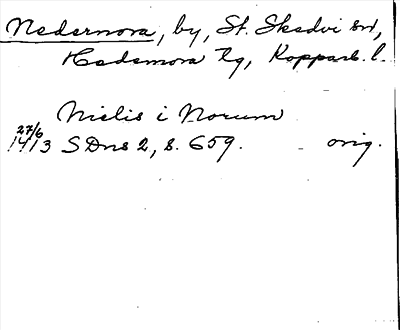 Nedernora, by, St. Skedvi sn,
Hedemora tg, Kopparb. l.
Nielis i Norum
27/6
1413 SDns 2, s. 659. orig.